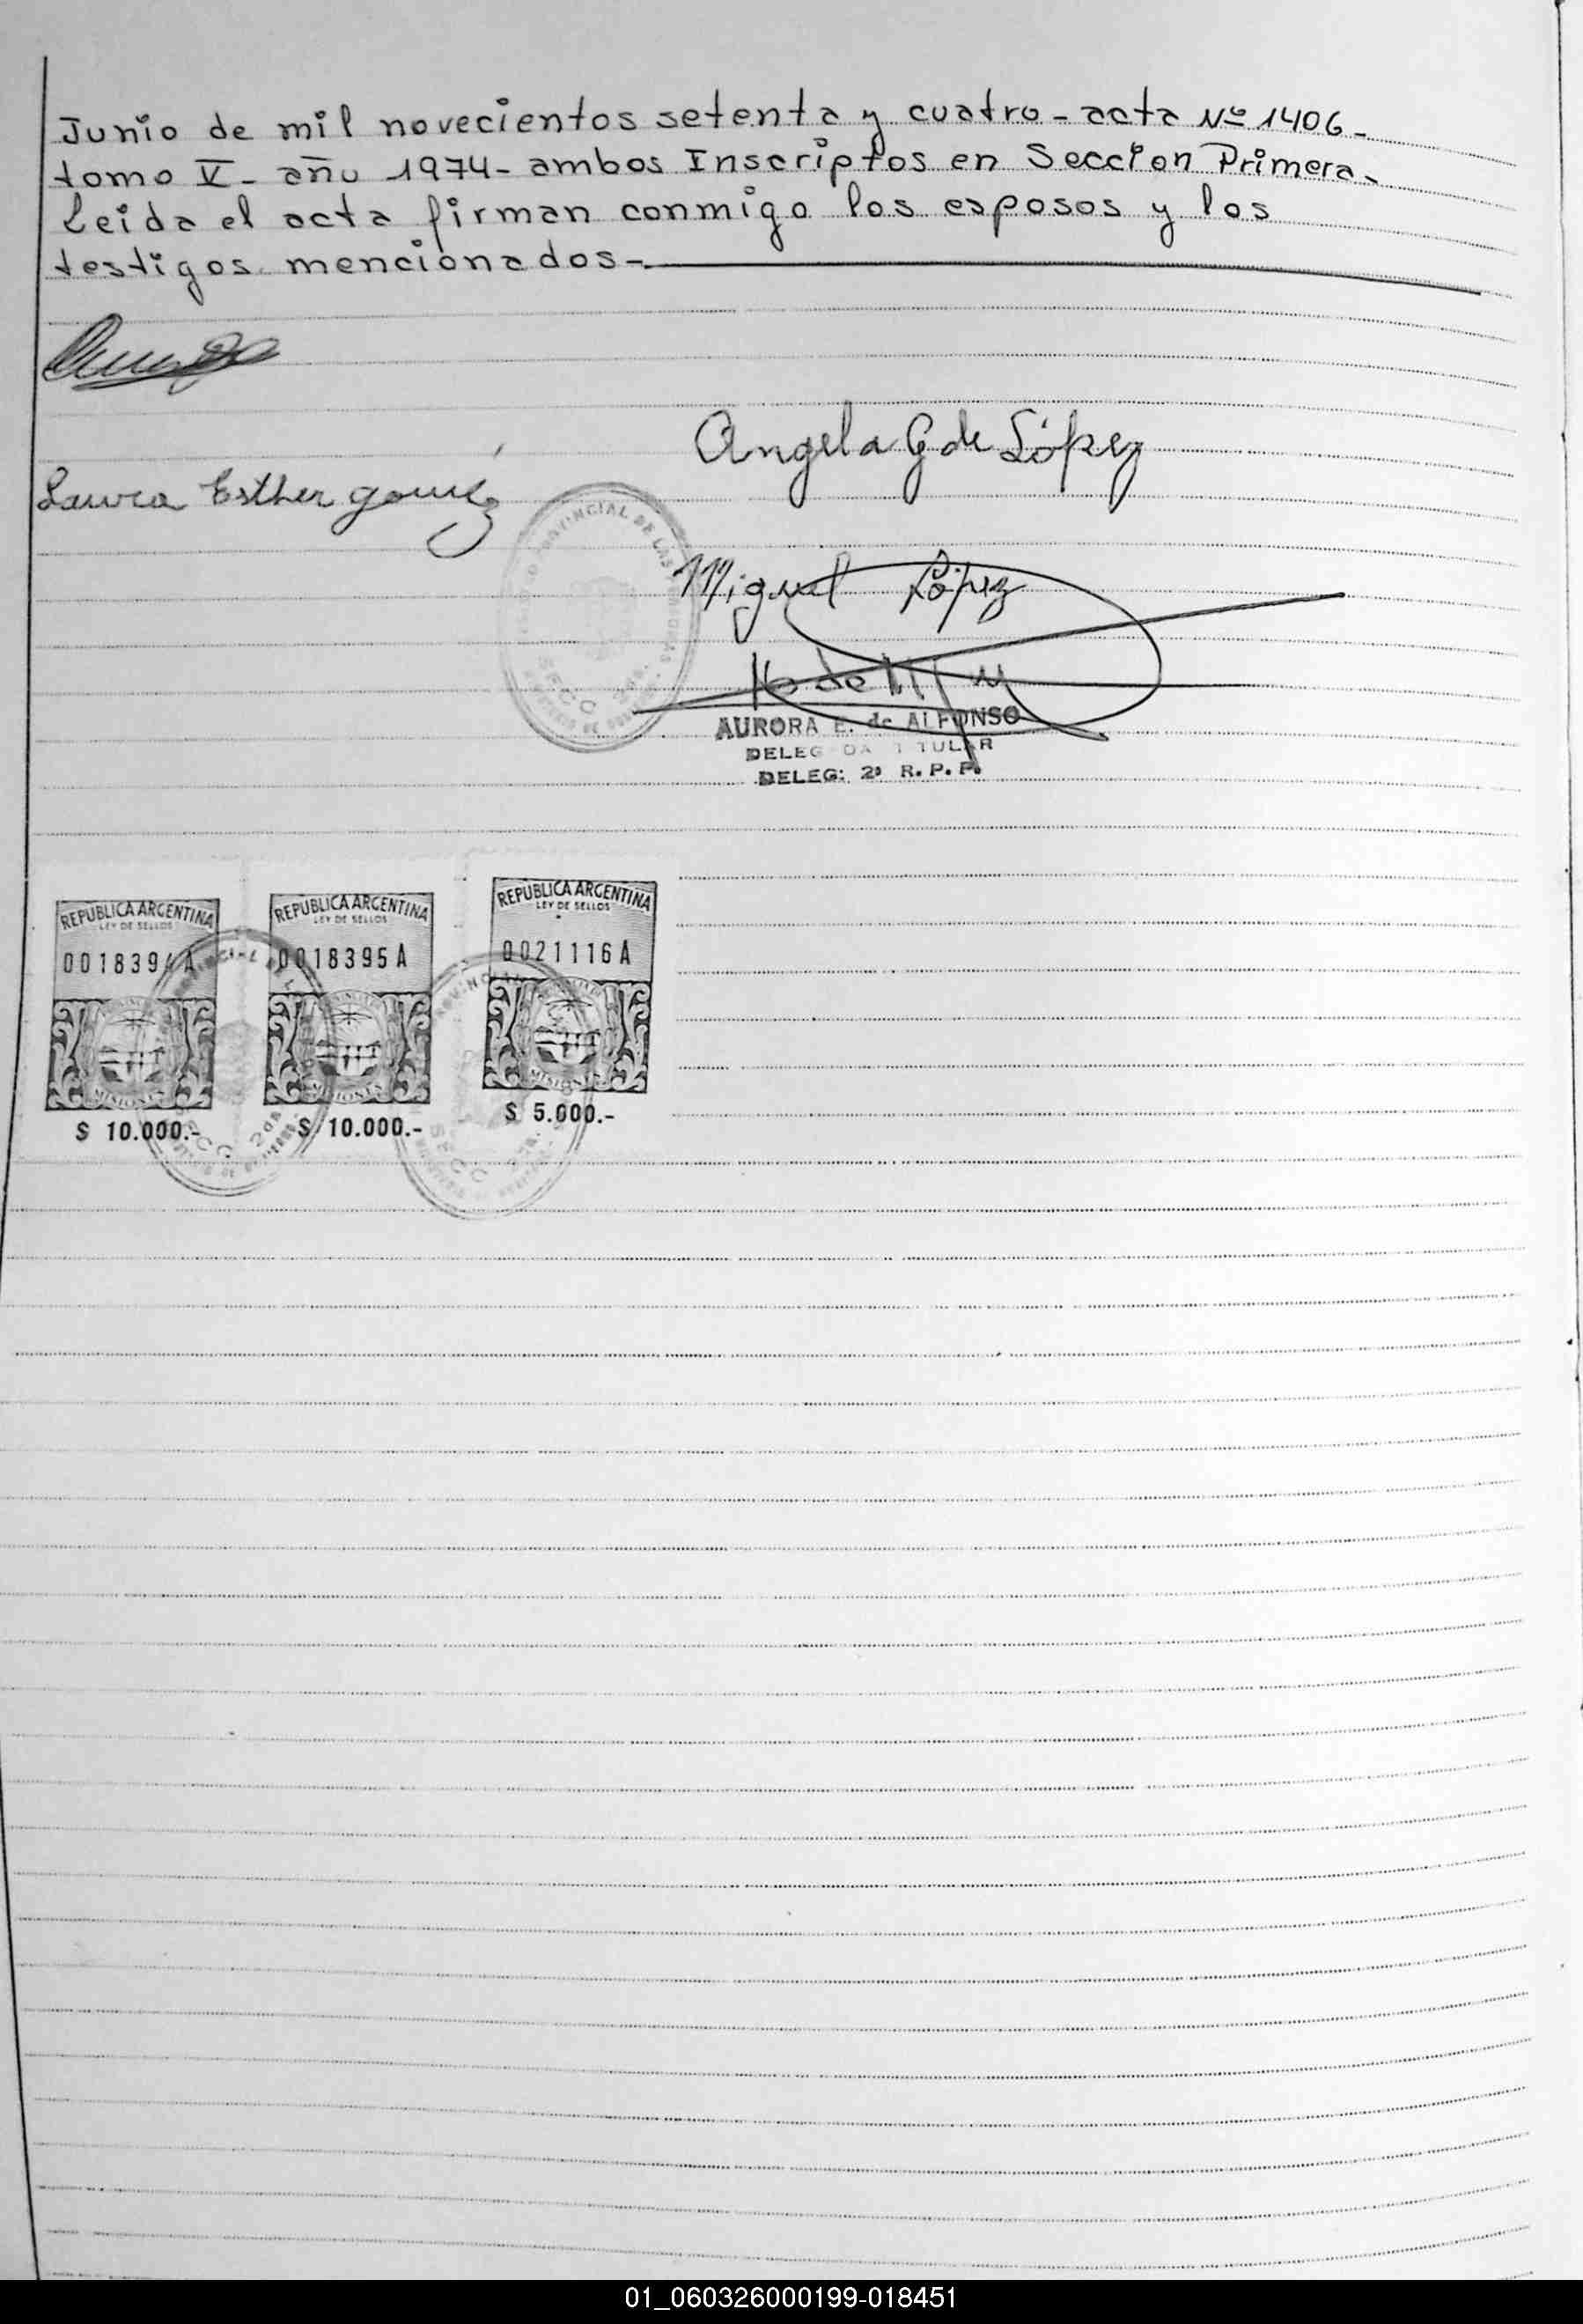 Junio de mil novecientos setenta y cuatro - acta Nº 1406 -
tomo V - año 1974 - ambos Inscriptos en Seccion Primera -
Leida el acta firman conmigo los esposos y los
testigos mencionados -
Angela G de López
Laura Esther gomez
Miguel López
AURORA E. de ALFONSO
DELEG DA TITULAR
DELEG: 2ª R. P. P.
REPUBLICA ARGENTINA
LEY DE SELLOS
001839 A
MISIONES
$ 10.000.-
REPUBLICA ARGENTINA
LEY DE SELLOS
0018395 A
MISIONES
$ 10.000.-
REPUBLICA ARGENTINA
LEY DE SELLOS
0021116 A
MISIONES
$ 5.000.-
01_060326000199-018451